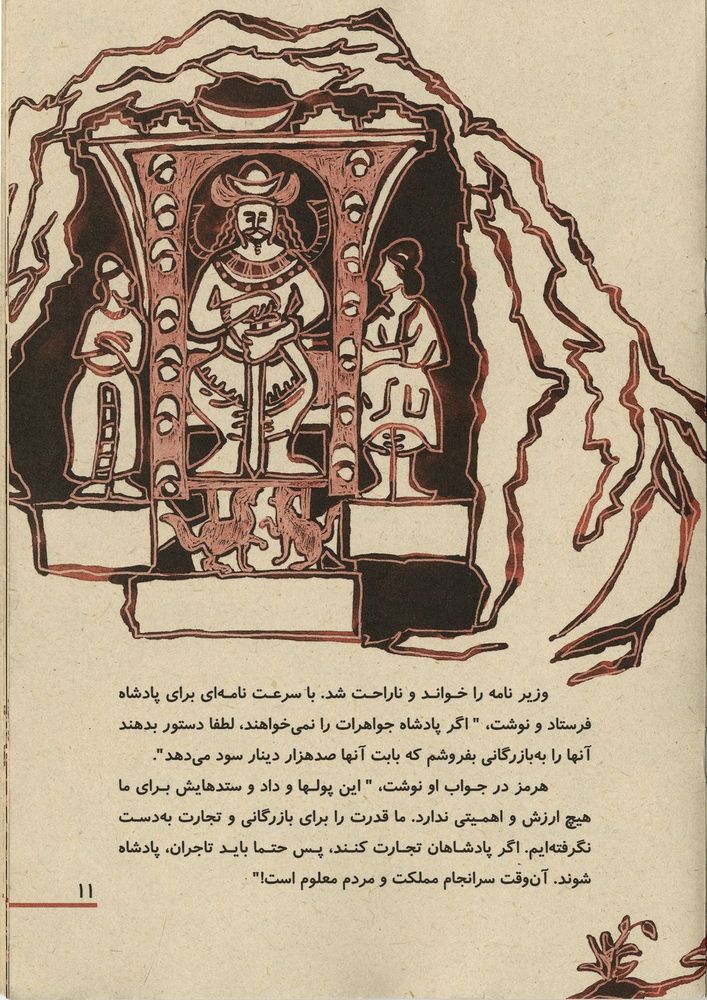 وزیر نامه را خواند و ناراحت شد. با سرعت نامه‌ای برای پادشاه
فرستاد و نوشت، " اگر پادشاه جواهرات را نمی‌خواهند، لطفا دستور بدهند
آنها را به‌بازرگانی بفروشم که بابت آنها صدهزار دینار سود می‌دهد".
هرمز در جواب او نوشت، " این پولها و داد و ستدهایش برای ما
هیچ ارزش و اهمیتی ندارد. ما قدرت را برای بازرگانی و تجارت به‌دست
نگرفته‌ایم. اگر پادشاهان تجارت کنند، پس حتما باید تاجران، پادشاه
شوند. آن‌وقت سرانجام مملکت و مردم معلوم است!"
۱۱